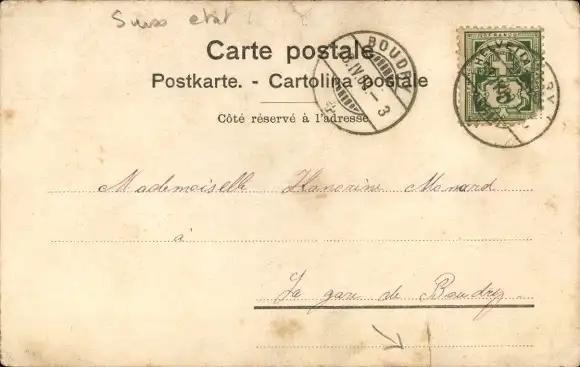 Suss etat
Carte postale
Postkarte. - Cartolina postale
Côté réservé à l'adresse
BOUDRY
IV.03. - 3
HELVETIA
5
Mademoiselle Hanorine Monard
à
La gare de Boudry